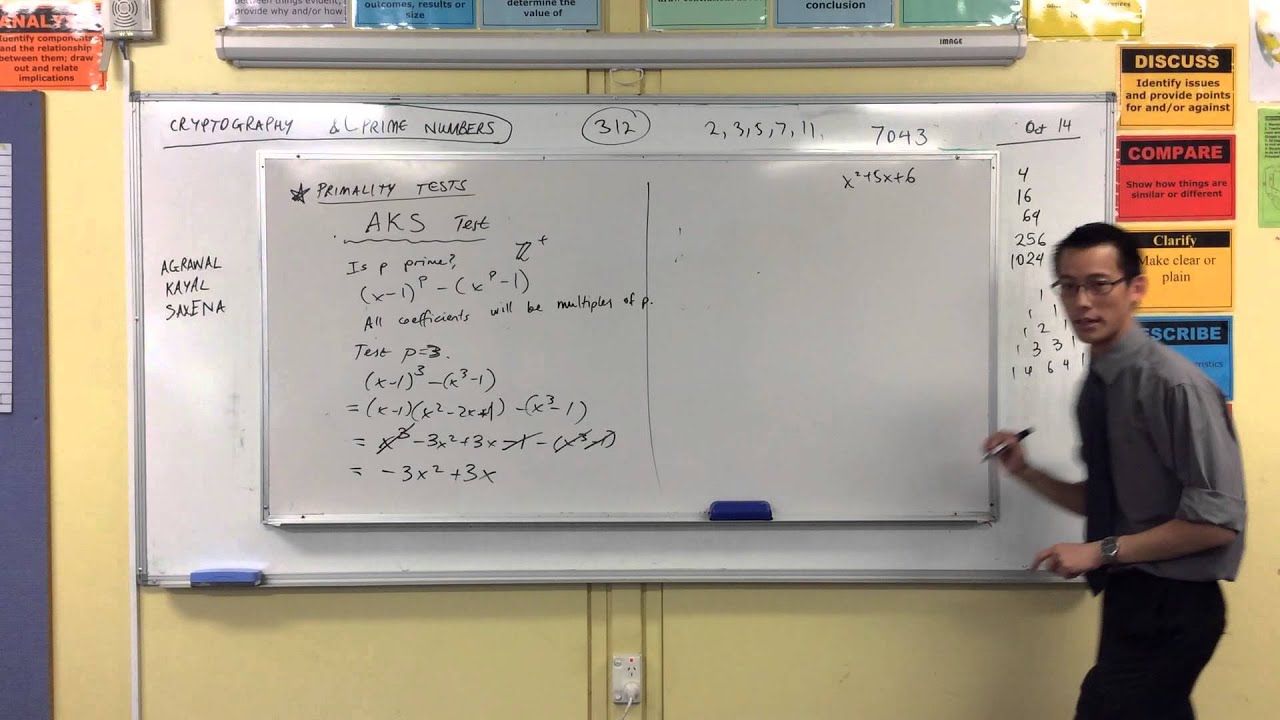 ANALY
Identify components
and the relationship
between them; draw
out and relate
implications
provide why and/or how
outcomes, results or
size
determine the
value of
conclusion
IMAGE
DISCUSS
Identify issues
and provide points
for and/or against
COMPARE
Show how things are
similar or different
Clarify
Make clear or
plain
ESCRIBE
CRYPTOGRAPHY & PRIME NUMBERS
312
2, 3, 5, 7, 11,
7043
Oct 14
PRIMALITY TESTS
AKS Test
Is p prime?
ℤ⁺
(x-1)^p - (x^p - 1)
All coefficients will be multiples of p.
Test p=3.
(x-1)³ - (x³-1)
= (x-1)(x²-2x+1) - (x³-1)
= x³ - 3x² + 3x - 1 - (x³-1)
= -3x² + 3x
AGRAWAL
KAYAL
SAXENA
x²+5x+6
4
16
64
256
1024
1
1 1
1 2 1
1 3 3 1
1 4 6 4 1